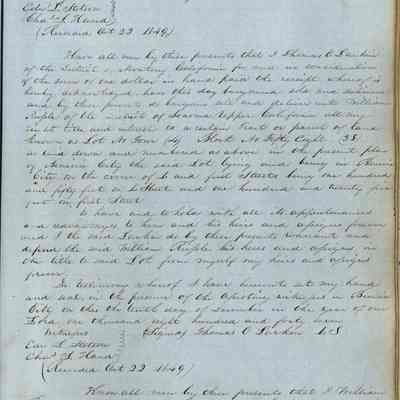 Edw L. Stetson
Chas L. Heard
(Received Oct 22 1849)
Know all men by these presents that I Thomas O Larkin
of the District of Monterey California for and in consideration
of the sum of one dollar in hand paid the receipt whereof is
hereby acknowledged have this day bargained sold and
and by these presents do bargain sell and deliver unto William
of the District of Sonoma Upper California all my
right title and interest to a certain Tract or parcel of land
known as Lot No Four (4) Block No Fifty Eight 58
as laid down and numbered as above in the present plan
of Benicia City the said Lot lying and being in Benicia
City on the corner of L and first Streets being one hundred
and fifty feet on L Street and one hundred and twenty five
feet on first Street
To have and to hold with all its appurtenances
and advantages to him and his heirs and assigns forever
and I the said Larkin do by these presents warrant and
defend the said William his heirs and assigns in
the title to said Lot from myself my heirs and assigns
In testimony whereof I have hereunto set my hand
and seal in the presence of the witnesses in Benicia
City on this the tenth day of December in the year of our
Lord one thousand eight hundred and forty seven
Witnesses (Signed) Thomas O Larkin L S
Edw L Stetson
Chas L Heard
(Received Oct 22 1849)
Know all men by these presents that I William